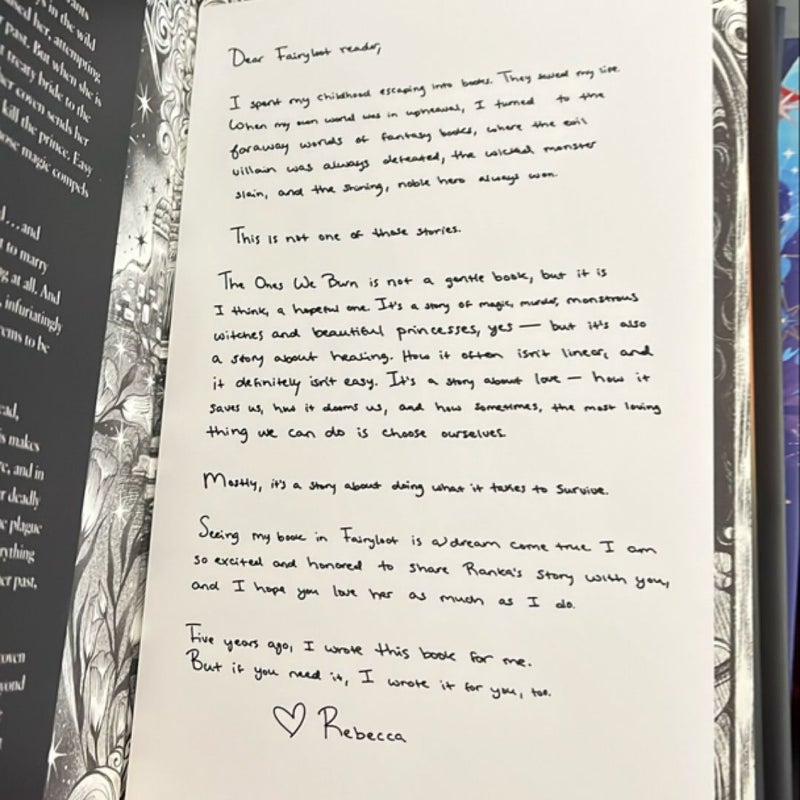 ants
ys in the wild
ised her, attempting
r past. But when she is
t treaty bride to the
her coven sends her
kill the prince. Easy
ose magic compels
d…and
t to marry
g at all. And
, infuriatingly
eems to be
ead,
is makes
e, and in
r deadly
e plague
rything
er past,
oven
yond
Dear Fairyloot reader,
I spent my childhood escaping into books. They saved my life.
When my own world was in upheaval, I turned to the
faraway worlds of fantasy books, where the evil
villain was always defeated, the wicked monster
slain, and the shining, noble hero always won.
This is not one of those stories.
The Ones We Burn is not a gentle book, but it is
I think, a hopeful one. It's a story of magic, murder, monstrous
witches and beautiful princesses, yes — but it's also
a story about healing. How it often isn't linear, and
it definitely isn't easy. It's a story about love — how it
saves us, how it dooms us, and how sometimes, the most loving
thing we can do is choose ourselves.
Mostly, it's a story about doing what it takes to survive.
Seeing my book in Fairyloot is a dream come true I am
so excited and honored to share Ranka's story with you,
and I hope you love her as much as I do.
Five years ago, I wrote this book for me.
But if you need it, I wrote it for you, too.
♡ Rebecca